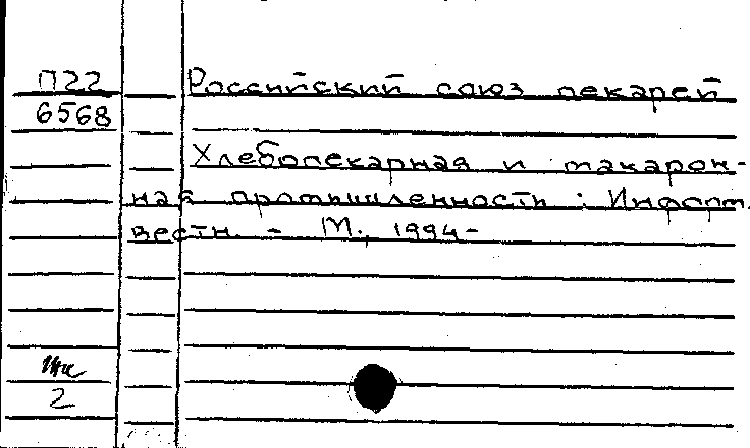 П22 Российский союз пекарей
6568
Хлебопекарная и макарон-
ная промышленность : Информ.
вестн. - М., 1994-
2